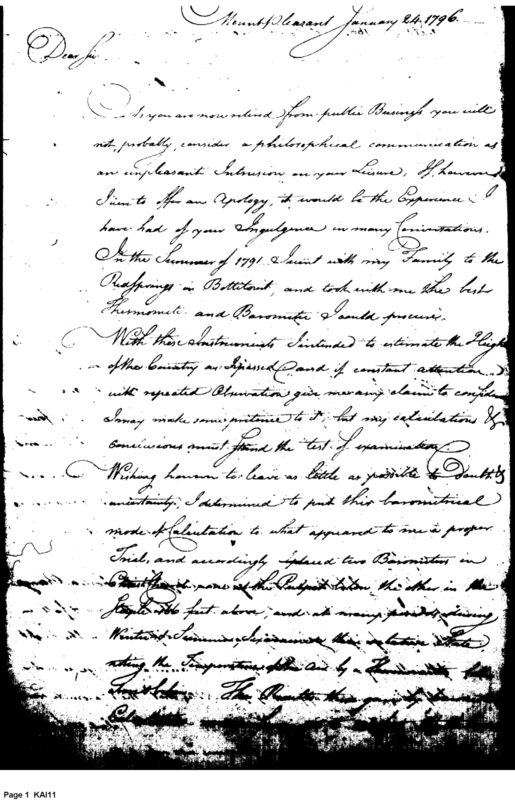 Mount pleasant January 24. 1796.
Dear Sir
As you are now retired from public Business you will
not, probably, consider a philosophical communication as
an unpleasant Intrusion on your Leisure, If, however
I were to offer an Apology, it would be the Experience I
have had of your Indulgence in many Conversations.
In the Summer of 1791 I went with my Family to the
Red Springs in Bottitout, and took with me the best
Thermometer and Barometer I could procure.
With these Instruments I intended to estimate the Height
of the Country as I passed and if constant attention
with repeated Observation give me any claim to confidence
I may make some pretence to it, but my calculations &
conclusions must stand the test of examination
Wishing however to leave as little as possible to doubt &
uncertainty, I determined to put this barometrical
mode of Calculation to what appeared to me a proper
Trial, and accordingly placed two Barometers in
one at the Pulpit below the other in the
Steeple feet above, and at many periods during
Winter & Summer, I examined their relative State,
noting the Temperature of the Air by a Thermometer
The Results thus given by
Calculation